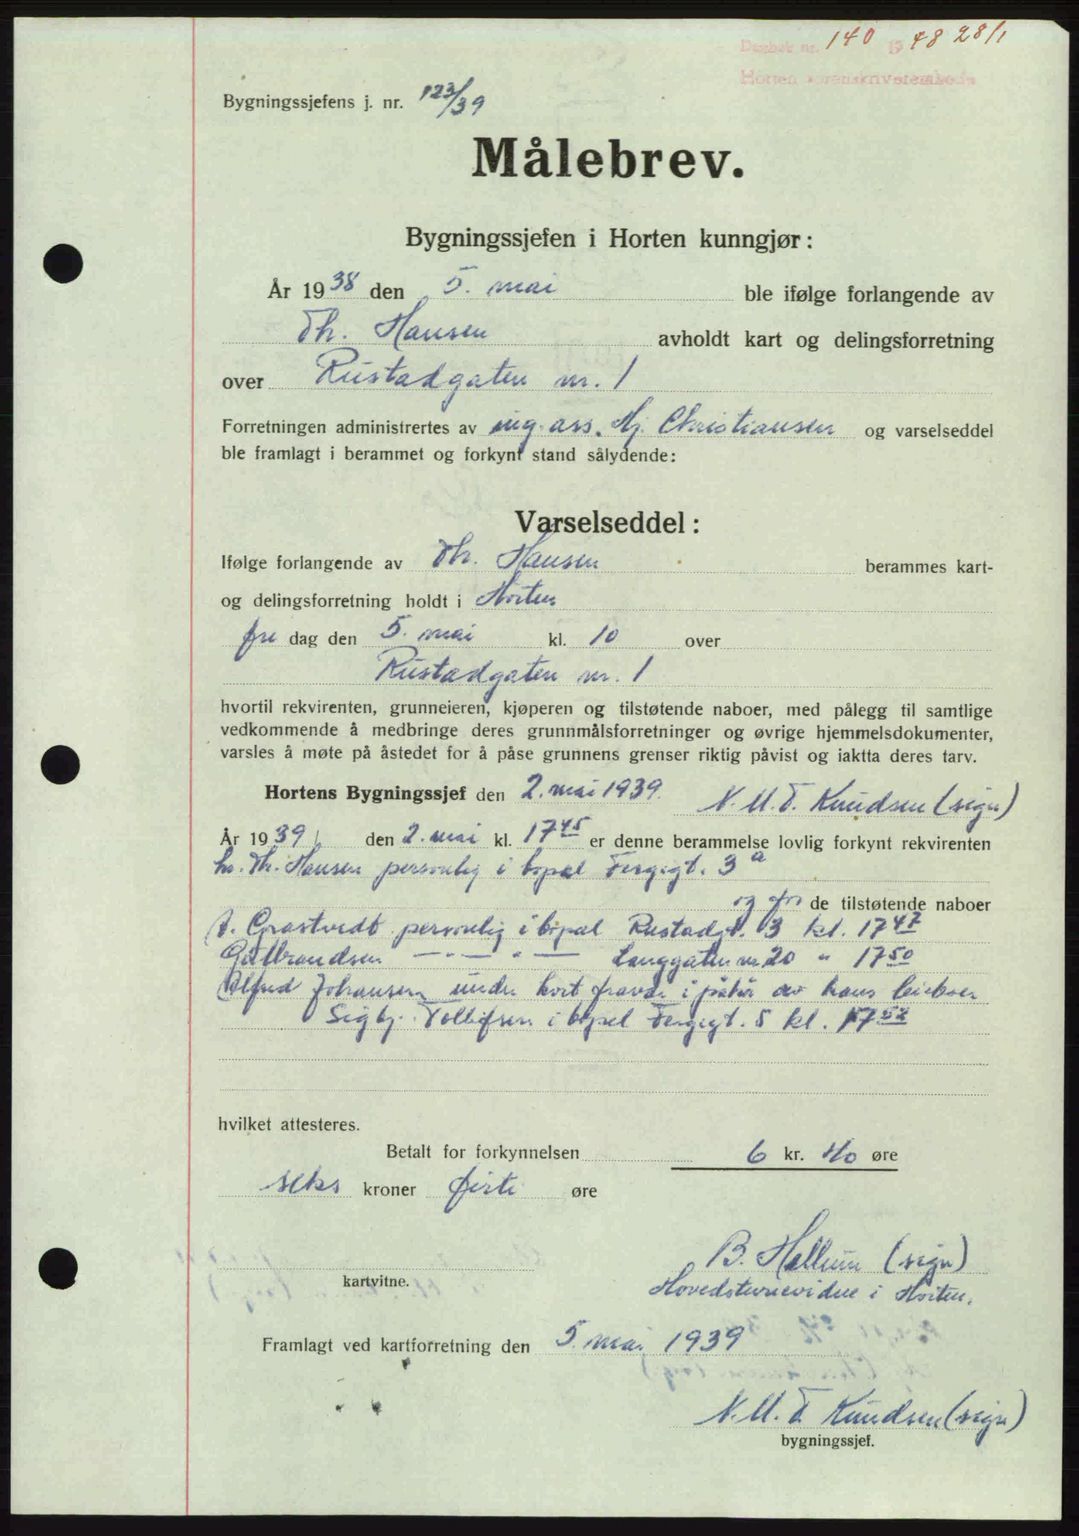 Dagbok nr. 140 19 48 28/1
Horten sorenskriverembede
Bygningssjefens j. nr. 123/39
Målebrev.
Bygningssjefen i Horten kunngjør:
År 1938 den 5. mai ble ifølge forlangende av
Th. Hansen avholdt kart og delingsforretning
over Rustadgaten nr. 1
Forretningen administrertes av ing. ass. Hj. Christiansen og varselseddel
ble framlagt i berammet og forkynt stand sålydende:
Varselseddel:
Ifølge forlangende av Th. Hansen berammes kart-
og delingsforretning holdt i Horten
fre dag den 5. mai kl. 10 over
Rustadgaten nr. 1
hvortil rekvirenten, grunneieren, kjøperen og tilstøtende naboer, med pålegg til samtlige
vedkommende å medbringe deres grunnmålsforretninger og øvrige hjemmelsdokumenter,
varsles å møte på åstedet for å påse grunnens grenser riktig påvist og iaktta deres tarv.
Hortens Bygningssjef den 2. mai 1939. N. M. T. Knudsen (sign)
År 1939 den 2. mai kl. 17 45 er denne berammelse lovlig forkynt rekvirenten
hr. Th. Hansen personlig i bopæl Fergegt. 3 a
og for de tilstøtende naboer
Grastvedt personlig i bopal Rustadgt. 3 kl. 17 47
Gulbrandsen — " — " — Langgaten nr 20 " 17 50
Alfred Johansen under kort fravær i påhør av hans leieboer
Sigbj. Tollefsen i bopel Fergegt. 5 kl. 17 52
hvilket attesteres.
Betalt for forkynnelsen 6 kr. 40 øre
seks kroner førti øre
B. Hellum (sign)
kartvitne. Hovedstevnevidne i Horten.
Framlagt ved kartforretning den 5. mai 1939
N. M. T. Knudsen (sign)
bygningssjef.